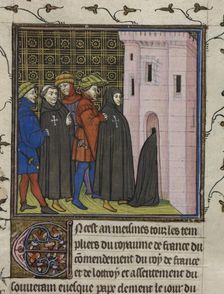 En cest an mesmes touz les tem
pliers du royaume de france du
cōmendement du roy de france
et de lottroy et assentement du
souuerain euesque pape clement le iour du